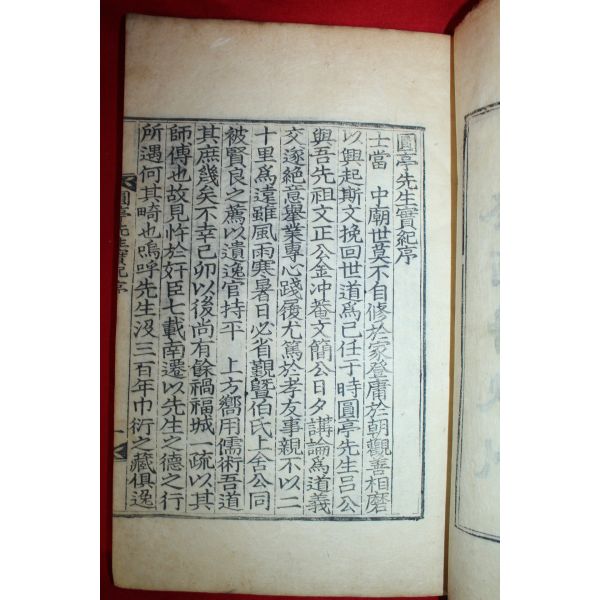 圓亭先生實紀序
士當 中廟世莫不自修於家登庸於朝觀善相磨
以興起斯文挽回世道爲己任于時圓亭先生呂公
與吾先祖文正公金冲菴文簡公日夕講論爲道義
交遂絕意擧業專心踐履尤篤於孝友事親不以二
十里爲遠雖風雨寒暑日必省覲曁伯氏上舍公同
被賢良之薦以遺逸官持平 上方嚮用儒術吾道
其庶幾矣不幸己卯以後尚有餘禍福城一疏以其
師傅也故見忤於奸臣七載南遷以先生之德之行
所遇何其畸也嗚呼先生沒三百年巾衍之藏俱逸
圓亭先生實紀序
一